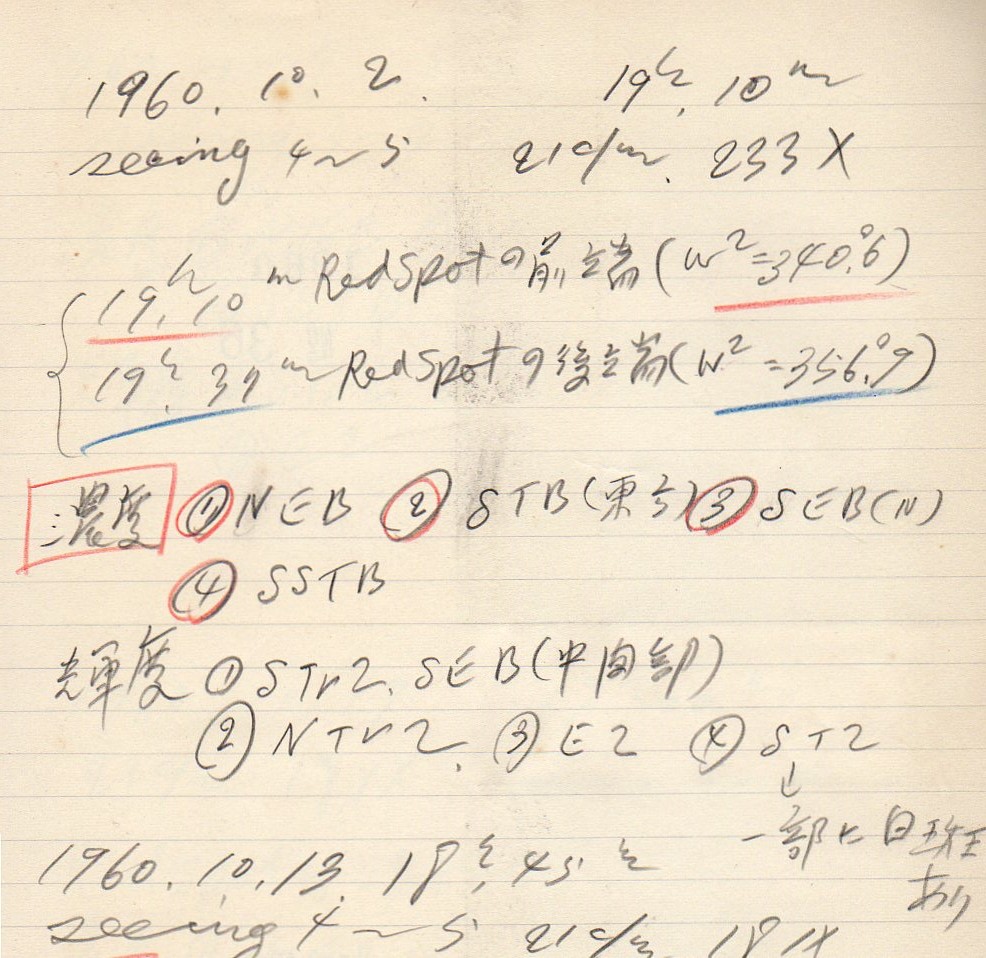 1960. 10. 2. 19h. 10m
seeing 4~5 21c/m. 233X
19h. 10m RedSpotの前端(W2=340°.6)
19h. 37m RedSpotの後端(W2=356°.9)
濃度 ①NEB ②STB(東方)③SEB(N)
④SSTB
輝度 ①STrZ. SEB(中間部)
②NTrZ. ③EZ ④STZ
↓
一部に白斑
あり
1960. 10. 13. 18h. 45m
seeing 4~5 21c/m 181X